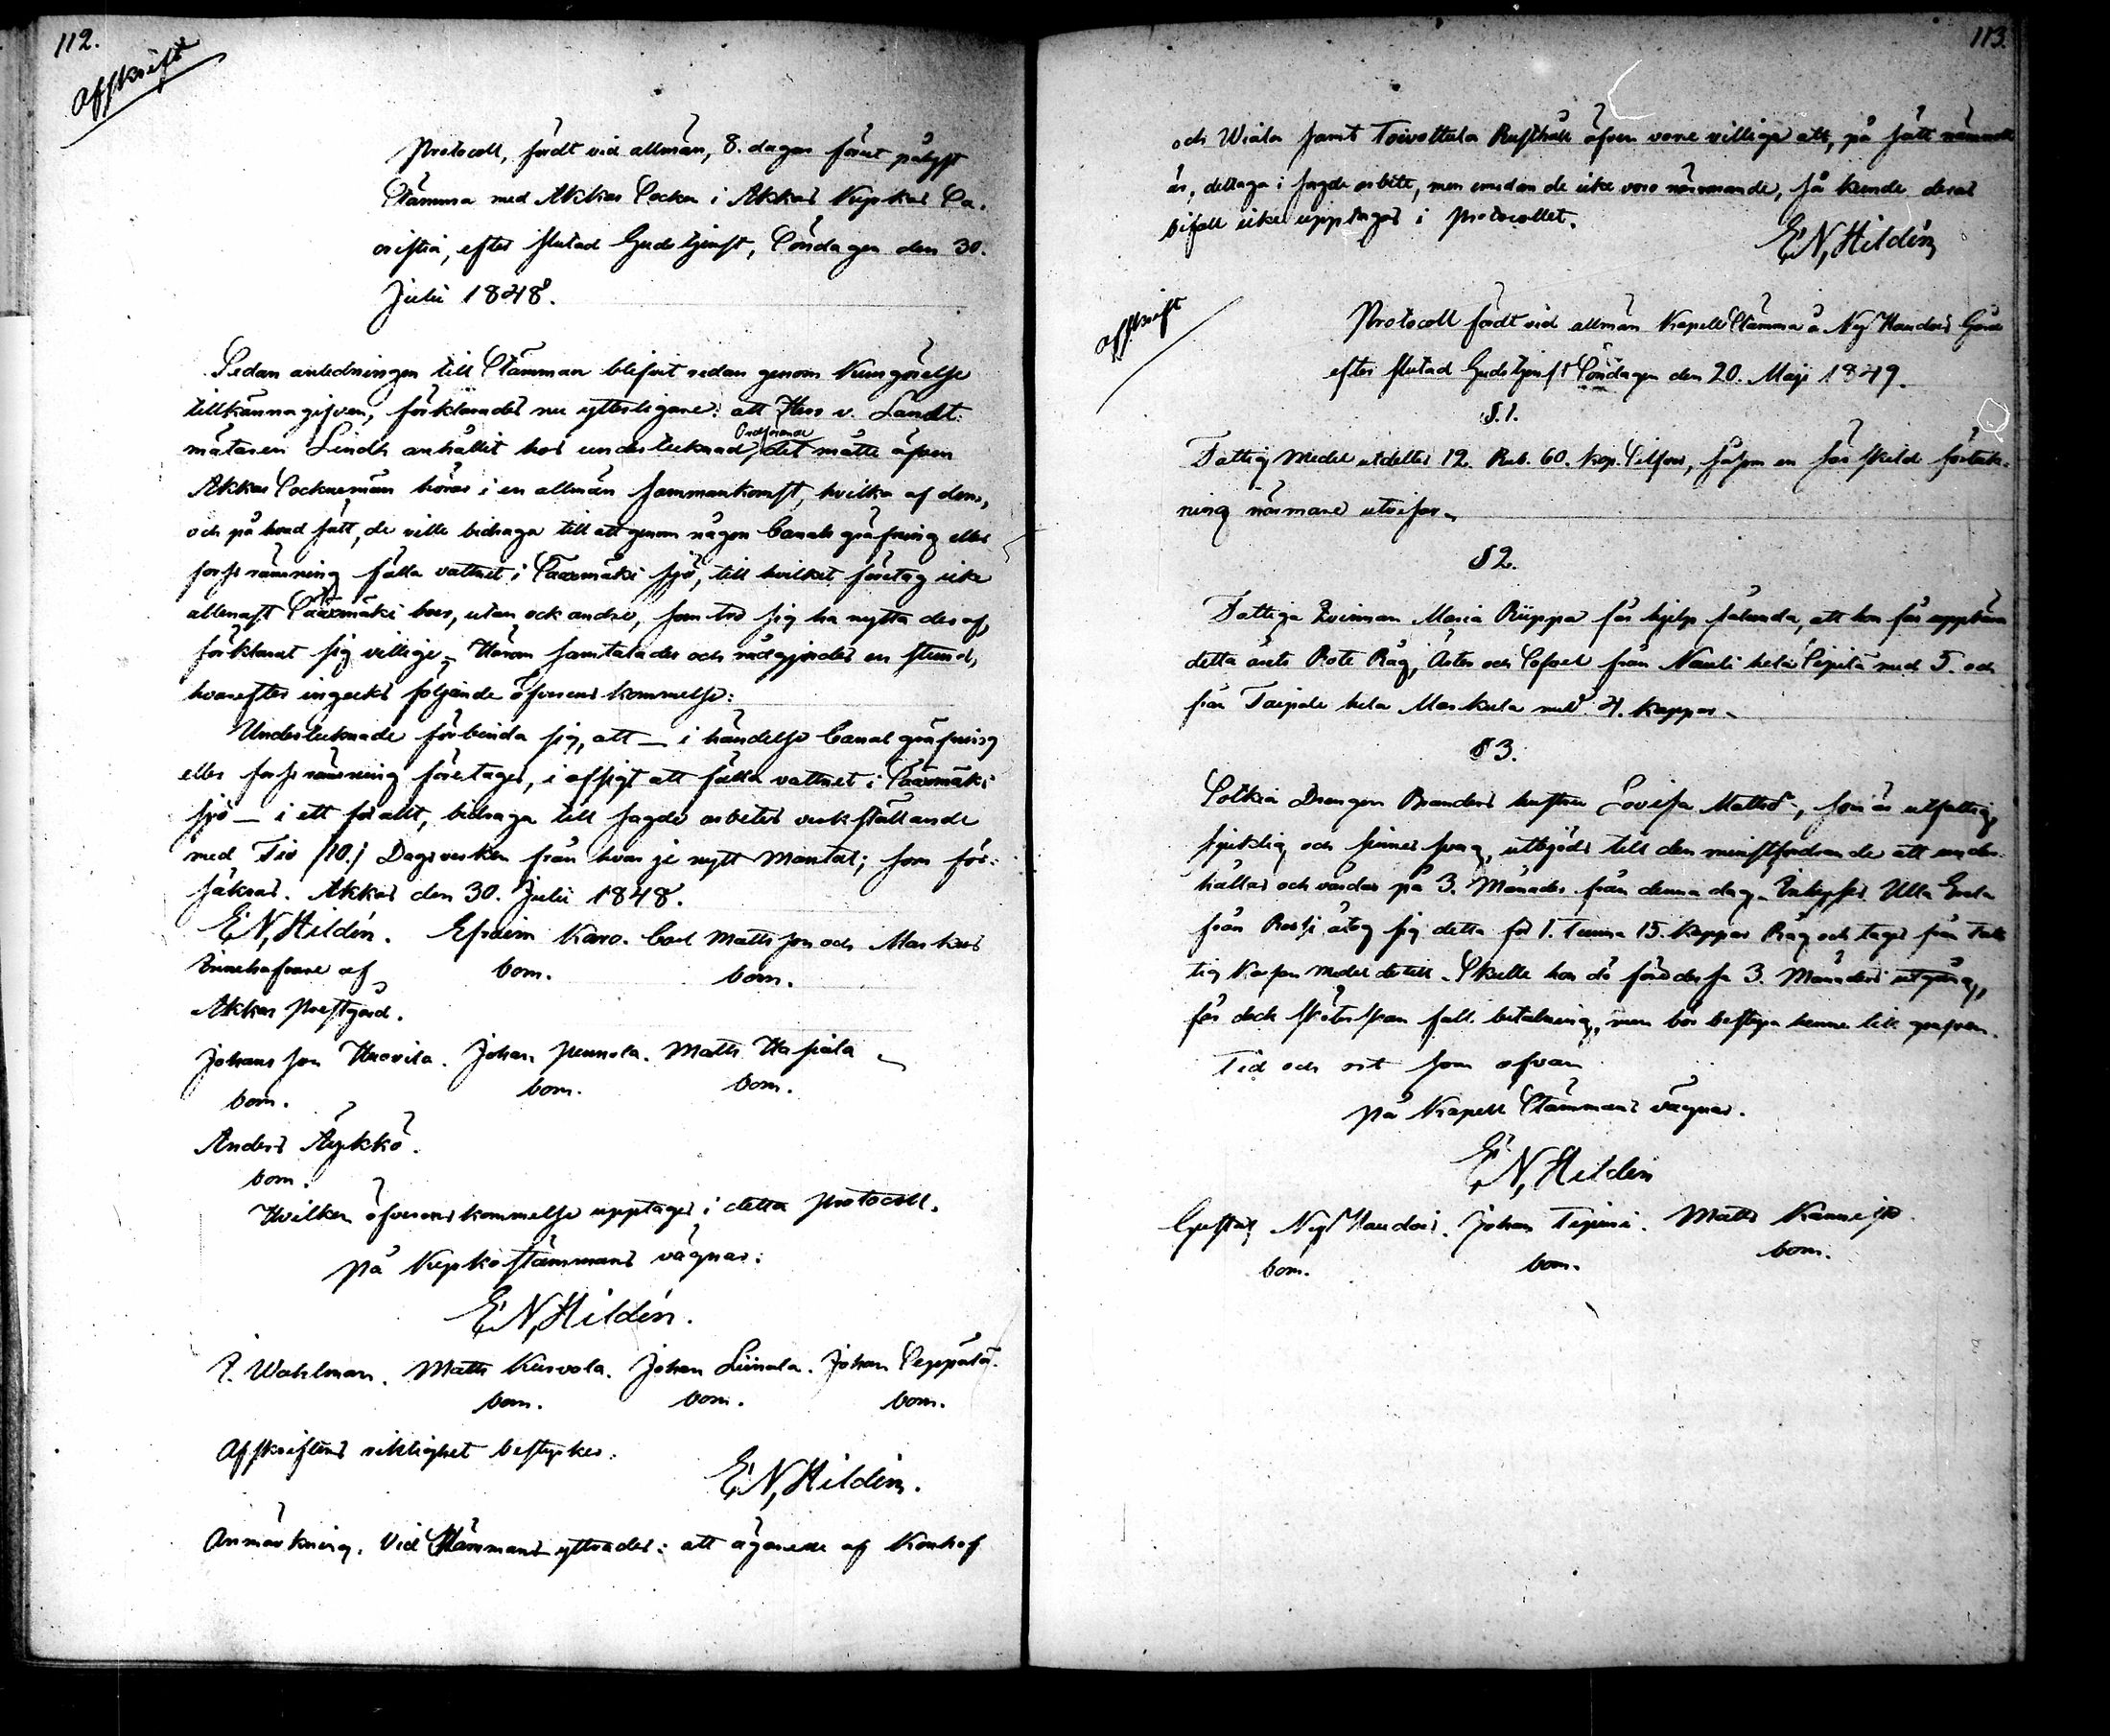 112.
Afskrift
Protocoll, fördt vid allmän, 8. dagar förut pålyst
Stämma med Akkas Socken i Akkas Kyrkas Sa-
cristia, efter slutad Gudstjenst, Söndagen den 30.
Julii 1848.
Sedan anledningen till Stämman blifvit redan genom Kungörelse
tillkännagifven, förklarades nu ytterligare: att Herr v. Landt-
mätaren Lindh anhållit hos undertecknad Ordförande, det måtte äfven
Akkas Sockneman höras i en allmän sammankomst, hvilka af dem,
och på hvad sätt, de ville bidraga till att genom någon Canals gräfning eller
forssrämning fälla vattnet i Sääxmäki sjö, till hvilket företag icke
allenast Sääxmäki boer, utan ock andre, som tro sig ha nytta deraf,
förklarat sig villige. Härom samtalades och rådgjordes en stund,
hvarefter ingicks följande öfverenskommelse:
Undertecknade förbinda sig, att – i händelse Canal gräfning
eller forssrämning företages, i afsigt att fälla vattnet i Sääxmäki
sjö – i ett för allt, bidraga till sagde arbetes verkställande
med Tio /10./ Dagsverken från hvarje nytt Mantal; som för-
säkras. Akkas den 30. Julii 1848.
E N, Hildén. Efraim Karo. Carl Mattsson och Markus
Innehafvare af bom. bom.
Akkas Prestgård.
Johansson Huovila. Johan Pennola. Matts Hapiala
bom. bom. bom.
Anders Äykkö.
bom.
Hvilken öfverenskommelse upptages i detta Protocoll.
På Kyrkostämmans vägnar:
E N, Hildén.
J. Wahlman. Matts Kurvola. Johan Liinala. Johan Seppälä.
bom. bom. bom.
Afskriftens riktighet bestyrker:
E N, Hildén.
Anmärkning. Vid Stämmans yttrades: att ägarene af Konhof
113.
och Wiala samt Toivottula Rusthåll äfven vore villiga att, på sätt nämndt
är, deltaga i sagde arbete, men emedan de icke voro närvarande, så kunde deras
bifall icke upptagas i Protocollet.
E N, Hildén
Afskrift
Protocoll fördt vid allmän Kapell Stämma å Nyÿ Haudois Gård
efter slutad Gudstjenst Söndagen den 20. Maji 1849.
§. 1.
Fattig Medel utdeltes 12. Rub. 60. Kop. Silfver, såsom en särskild förtek-
ning närmare utvisar.
§ 2.
Fattiga Qvinnan Maria Riippa får hjelp sålunda, att hon får uppbära
detta årets Rote Råg, Ärter och Sofvel från Nauli hela Sipilä med 5. och
från Taipale hela Markula med 4. Kappar.
§ 3.
Sotkia Drängen Branders hustru Lovisa Mattsdr, som är utfattig,
sjuklig och sinnes svag, utbjöds till den minstfordrande att under-
hållas och vårdas på 3. Månader från denna dag. Inhyses Ulla Greta
från Rossi åtog sig detta för 1. Tunna 15. Kappar Råg och tages från Fat-
tig Kassan medel dertill. Skulle hon dö före dessa 3. Månaders utgång,
får dock sköterskan full betalning, men bör bestyra henne till grafven.
Tid och ort som ofvan
På Kapell Stämmans vägnar.
E N, Hildén
Gustaf Nyÿ Haudois. Johan Tipuri. Matts Kannisto.
bom. bom. bom.